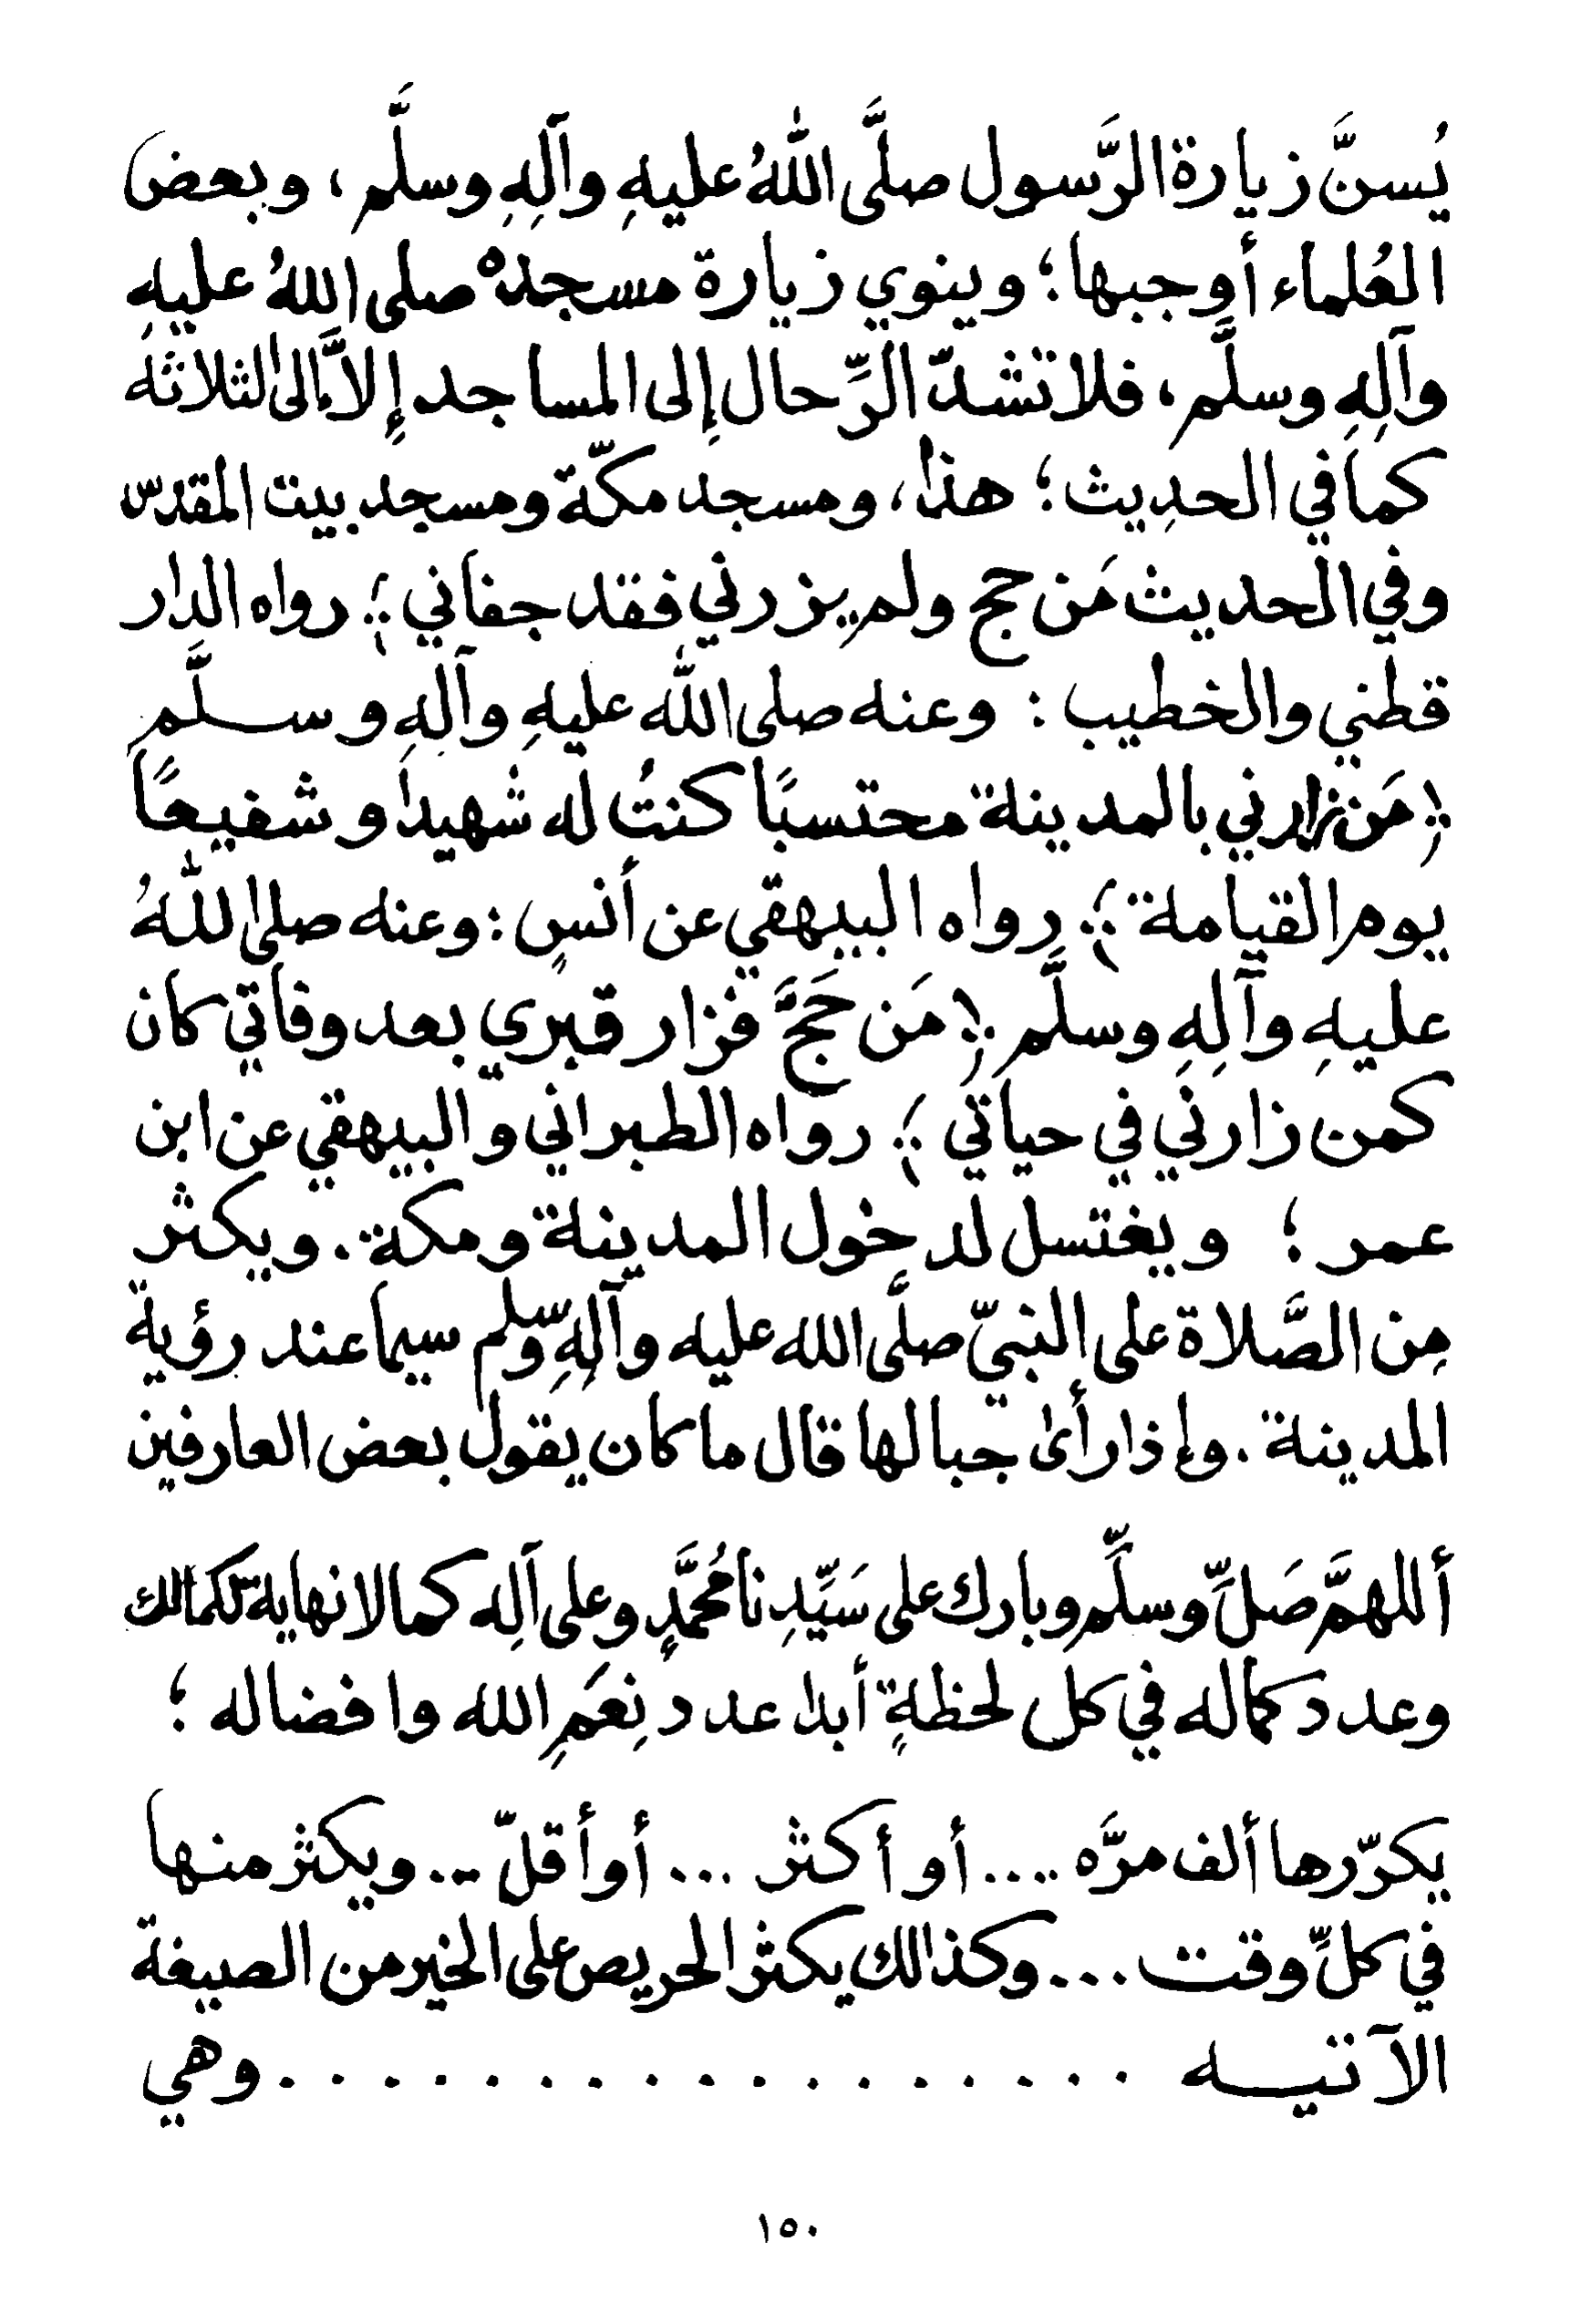 يُسنَّ زيارة الرَّسول صلَّى اللهُ عليهِ وآلِهِ وسلَّم ، وبعض
العُلماء أوجبها ؛ وينوي زيارة مسجده صلى اللهُ عليهِ
وآلِهِ وسلَّم ، فلا تشدّ الرِّحال إلى المساجد إلاَّ إلى الثلاثة
كما في الحديث ؛ هذا ، ومسجد مكّة ومسجد بيت المقدس
وفي الحديث مَن حج ولم يزرني فقد جفاني ﴾ رواه الدار
قطني والخطيب : وعنه صلى الله عليهِ وآلِهِ وسلَّم
﴿ مَن زارني بالمدينة محتسبًا كنتُ له شهيدا وشفيعًا
يوم القيامة ﴾ رواه البيهقي عن أنسٍ : وعنه صلى اللهُ
عليهِ وآلِهِ وسلَّم ﴿ مَن حَجَّ فزار قبري بعد وفاتي كان
كمن زارني في حياتي ﴾ رواه الطبراني والبيهقي عن ابن
عمر ؛ ويغتسل لدخول المدينة ومكة . ويكثر
مِن الصَّلاة على النبيّ صلَّى الله عليه وآلِهِ وسّلم سيما عند رؤية
المدينة . وإذا رأى جبالها قال ما كان يقول بعض العارفين
أللهمَّ صَلِّ وسلِّم وبارك على سَيِّدِنا مُحمَّدٍ وعلى آلِه كما لا نهاية لكمالك
وعدد كماله في كل لحظةٍ أبدا عدد نِعَمِ الله وافضاله ؛
يكرّرها ألف مرَّه .... أو أكثر ... أو أقلّ ... ويكثر منها
في كلِّ وقت ... وكذالك يكثر الحريص على الخير من الصيغة
الآتيه . . . . . . . . . . . . . . . . . وهي
١٥٠